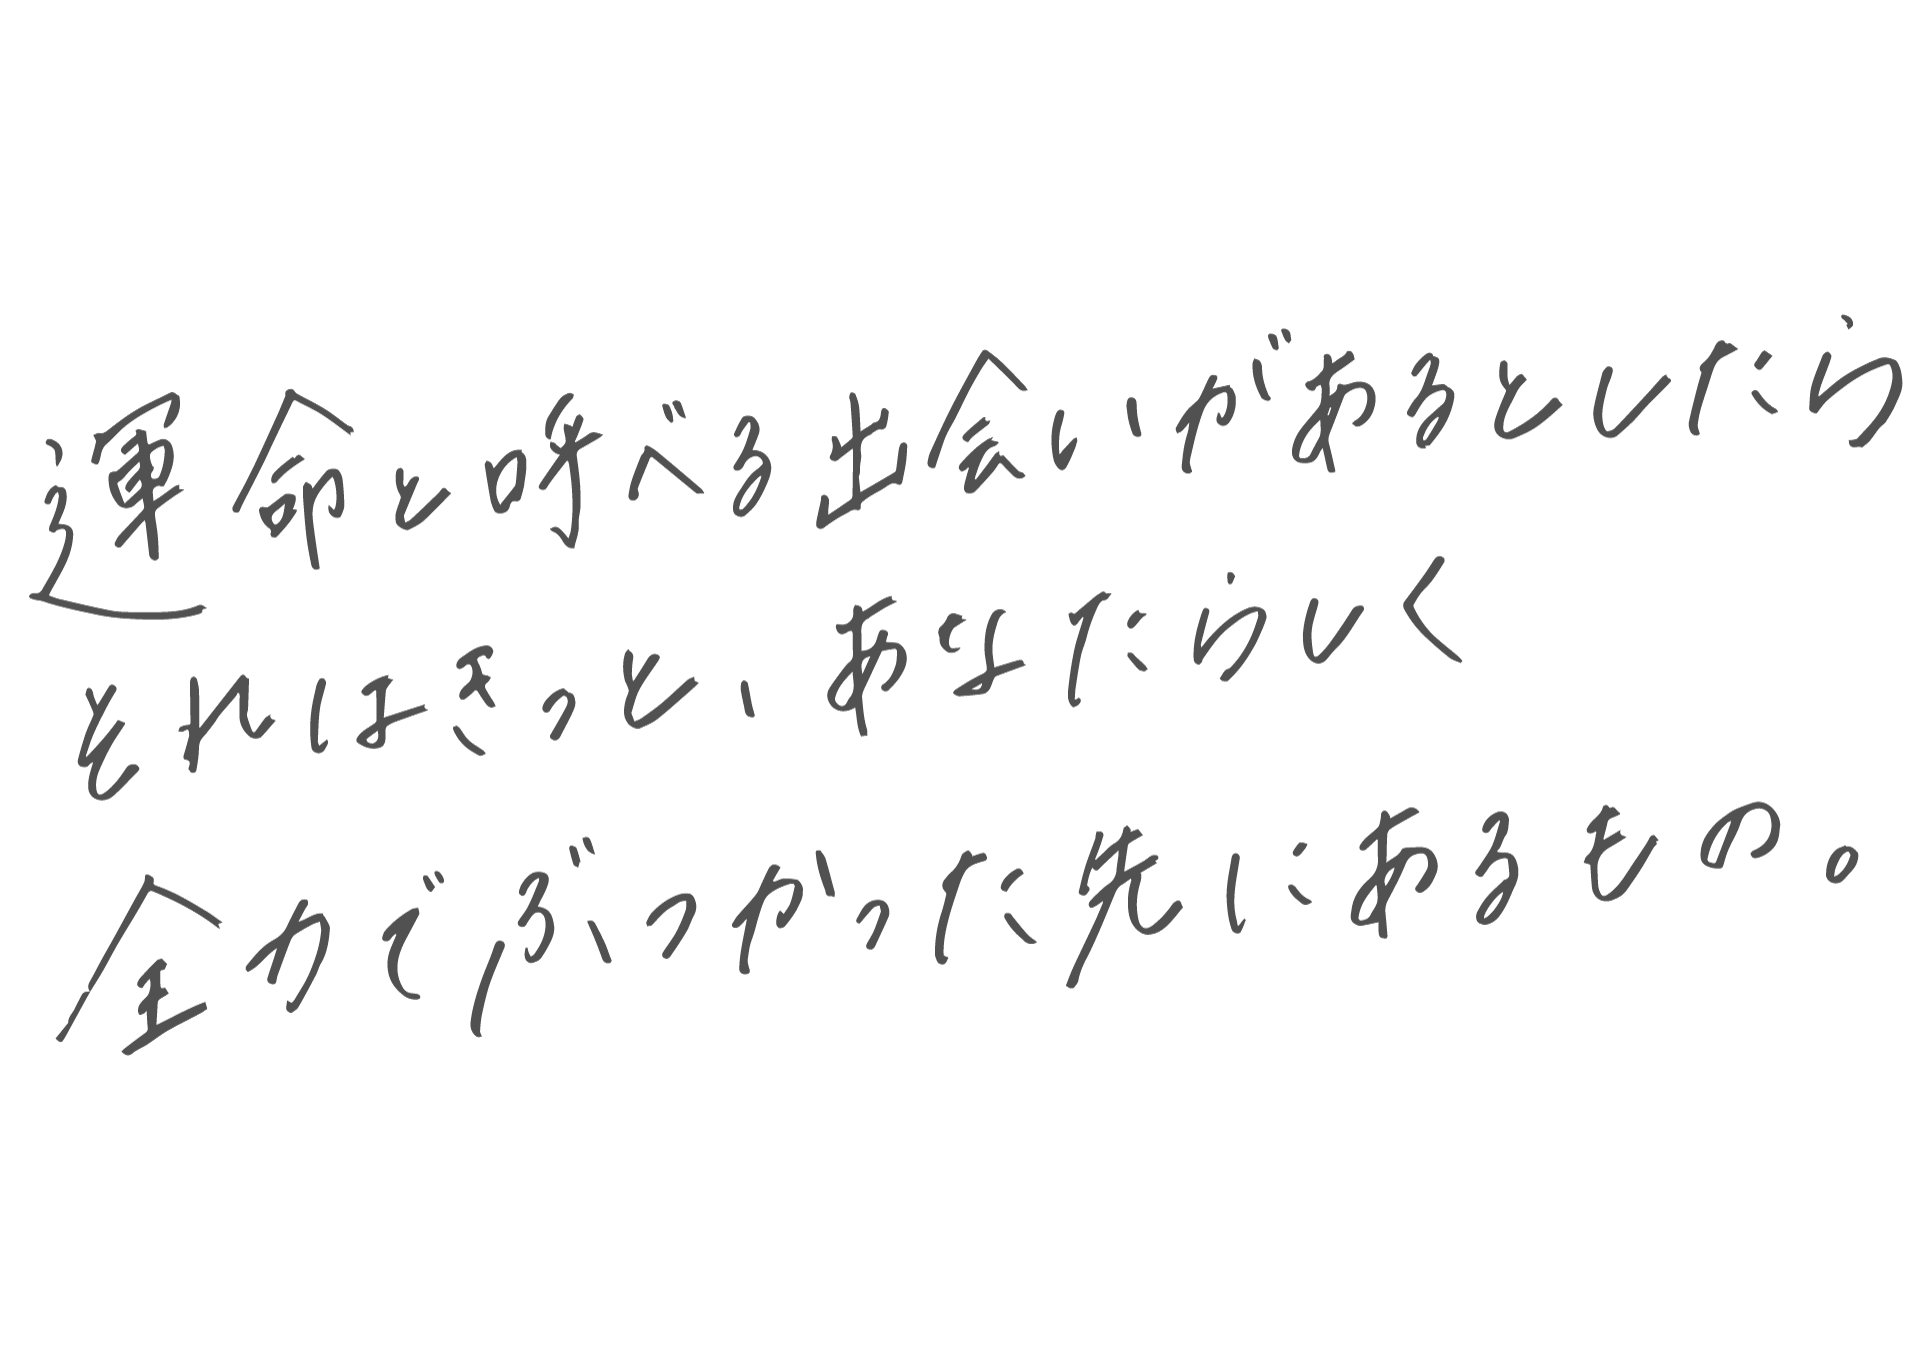 運命と呼べる出会いがあるとしたら
それはきっと、あなたらしく
全力でぶつかった先にあるもの。